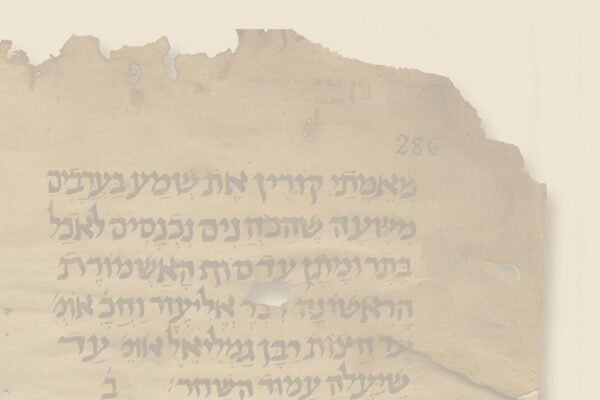 286
מאמתי קורין את שמע בערבים
משעה שהכהנים נכנסים לאכל
בתרומתן עד סוף האשמורת
הראשונה אליעזר וחכ׳ אומ׳
עד חצות רבן גמליאל אומ׳ עד
שיעלה עמוד השחר ב